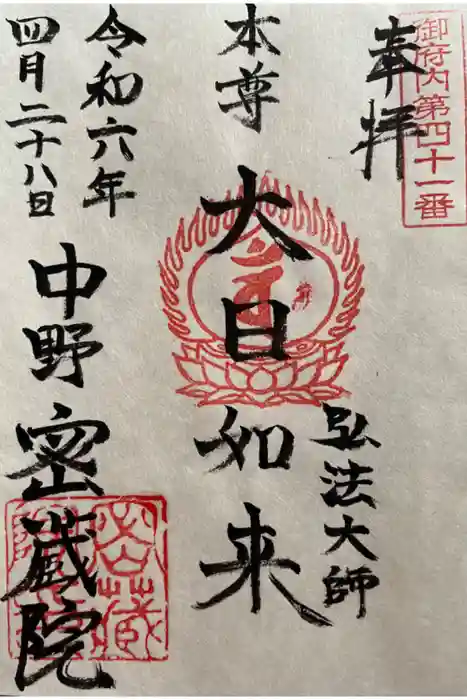 御府内第四十一番
奉拝
弘法大師
本尊
大日如来
令和六年
四月二十八日
中野
密蔵院